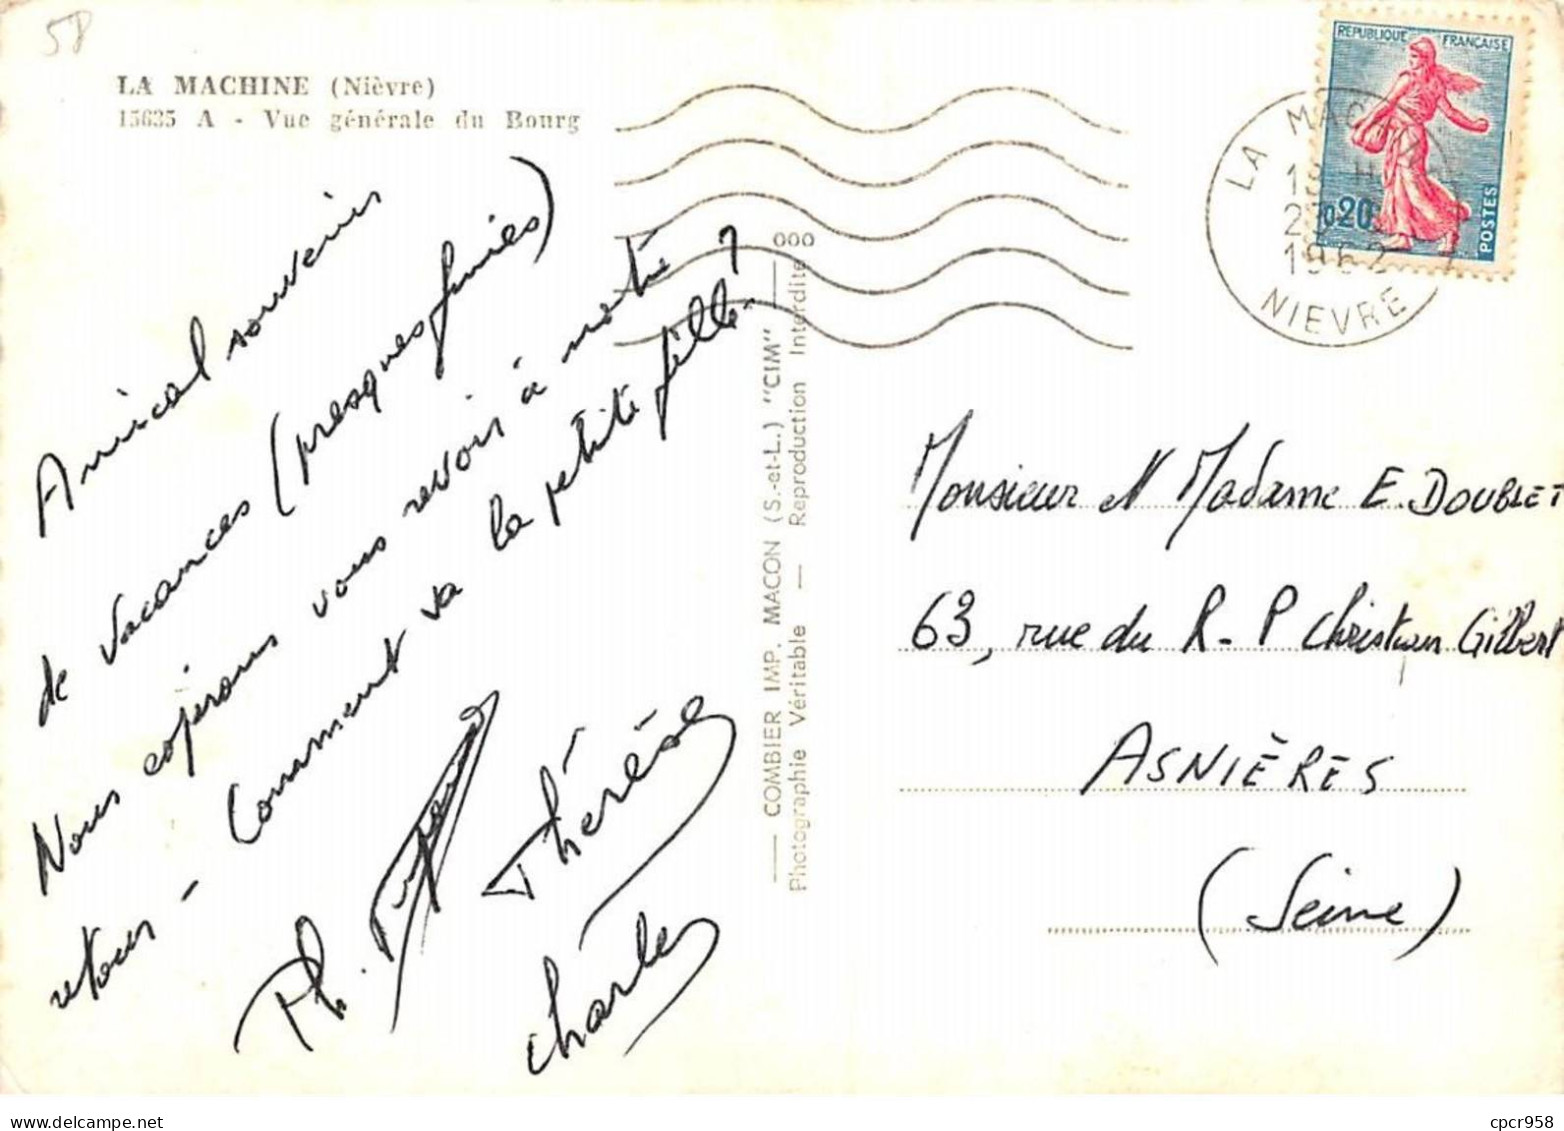 58
LA MACHINE (Nièvre)
15635 A - Vue générale du Bourg
Amical souvenir
de vacances (presques finies)
Nous espérons vous revoir à notre
retour - Comment va la petite fille ?
Ph.
Thérèse
Charles
COMBIER IMP. MACON (S.-et-L.) "CIM"
Photographie Véritable — Reproduction Interdite
000
REPUBLIQUE FRANÇAISE
0,20
POSTES
LA MACHINE
1962
NIEVRE
Monsieur et Madame E. DOUBLET
63, rue du R-P Christian Gilbert
ASNIÈRES
(Seine)
cpcr958